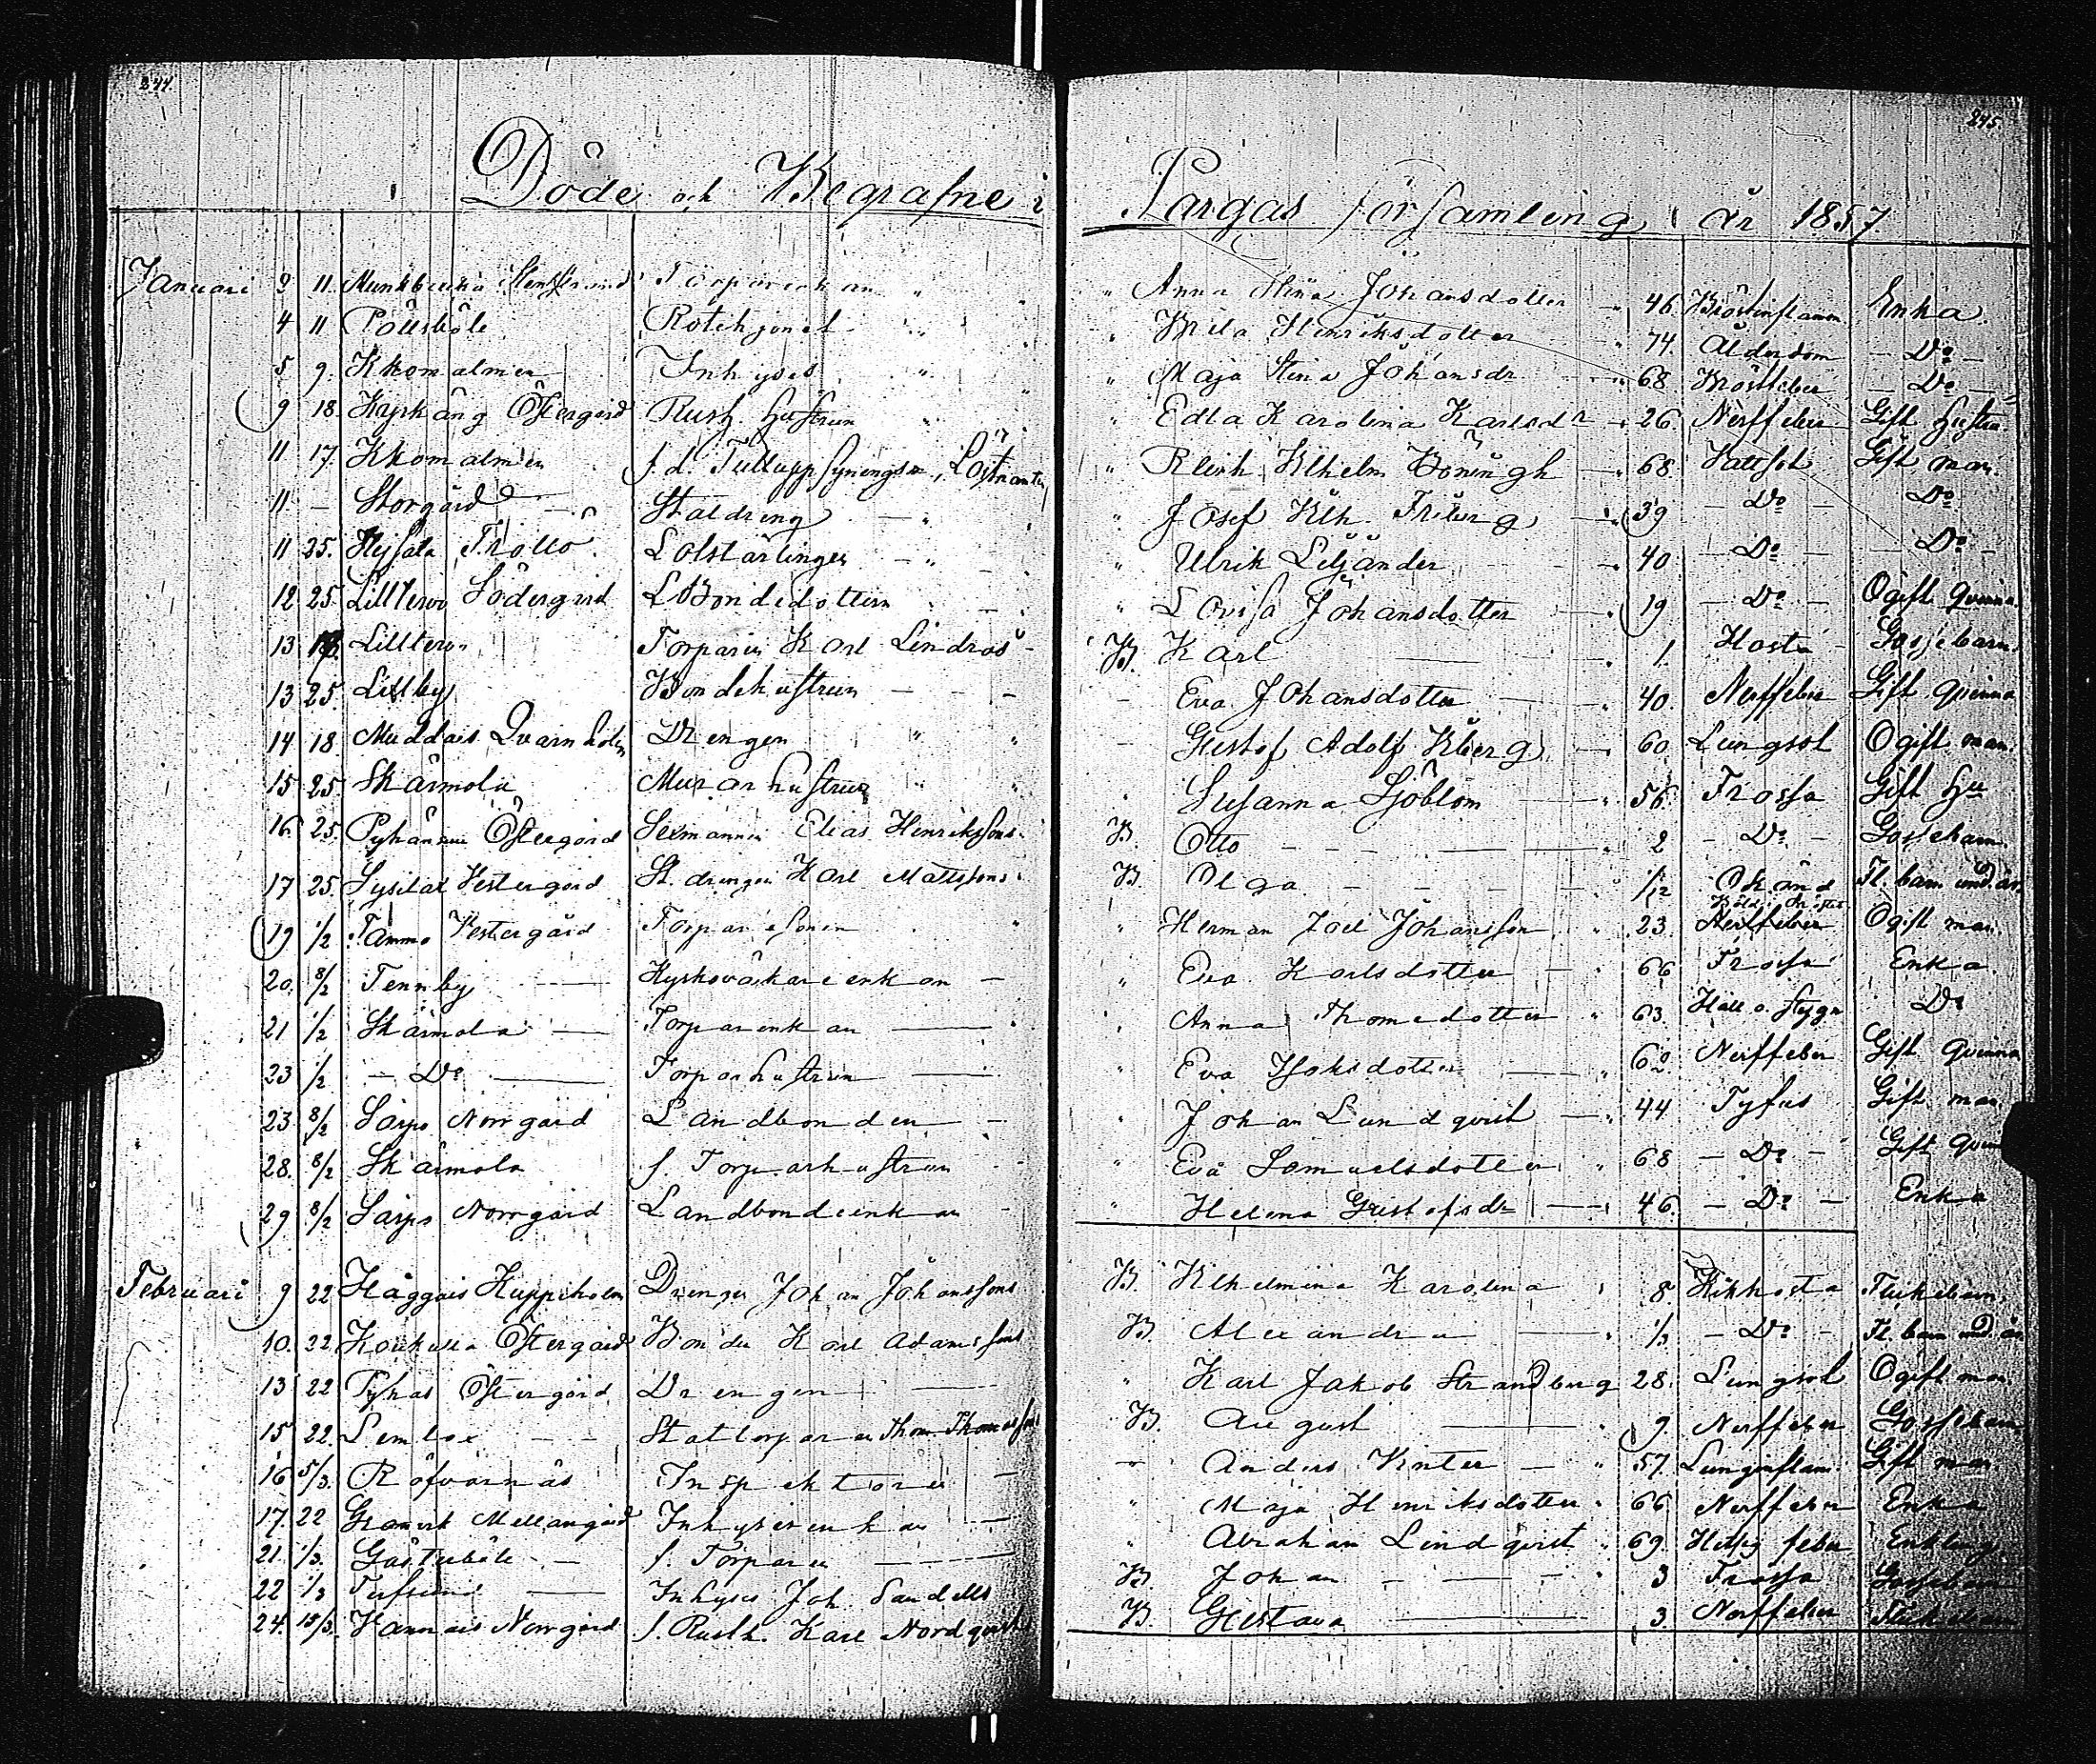 244.
245.
Döde och Begrafne i Pargas församling år 1857.
Januari 3 11. Munkbucka Torparenkan " " Anna Stina Johansdotter 46. Bröstinflamm. Enka
4 11 Pollsböle Rotehjonet " Henriksdotter 74. Ålderdom - Do -
5 9. Inhyses " " Maja Stina Johansdr 68 Bröstfeber - Do -
9 18. Kyrkäng Östergård Rusth. hustrun " Edla Karolina Karlsdr 26. Nerffeber Gift hustru
11 17. f. d. Tulluppsyningsm., " 68. Vattsot Gift man.
11 - Storgård Staldreng - " " Josef Wilh. Friberg 39 - Do - Do
11 25. " Ulrik Liljander 40 - Do - - Do -
12 25. Lilltervo Södergård Bondedottern " Lovisa Johansdotter 19 - Do - Ogift Qvinna.
13 18. Lilltervo Torparen Karl Lindros B. Karl 1. Hosta Gossebarn.
13 25. Lillby Bondehustrun - - - Eva Johansdotter 40. Nerffeber Gift Qvinna
14 18. Muddais Qvarnholm Drengen " " - Gustof Adolf 60 Lungsot Ogift man.
15 25. Skärmola Murarhustrun " Susanna Sjöblom 56. Trossa Gift Hu
16 25. Östergård Elias Henrikssons B. Otto - - - 2 - Do - Gossebarn
17 25. Sysilax Vestergård St. drengen Karl Mattssons B. Olga - - - 1/12 Okänd Fl. barn und. år.
19 1/2 Tammo Vestergård Torparesonen " Herman Joel Johansson 23. Nerffeber Ogift man.
20. 8/2 Tennby Kyrkoväktareenkan - " Eva Karlsdotter 66 Trossa Enka
21 1/2 Skärmola Torparenkan " Anna Thomedotter 63. Håll o. stygn Do
23 1/2 - Do Torparhustrun " Eva 62 Nerffeber Gift Qvinna
23 8/2 Sarps Norrgård Landbonden - " Johan Lundqvist 44 Tyfus Gift man
28. 8/2 Skärmola f. Torparhustrun " Eva Samuelsdotter 68 - Do - Gift Qvin
29 8/2 Sarps Norrgård Landbondenkan " Helena Gustafsdr 46. - Do - Enka
Februari 9 22 Haggais Kuppiholm Drengen Johan Johanssons B. Wilhelmina Karolina 8. Kikhosta Flickebarn.
10. 22 Östergård Bonden Karl Adamssons B. Alexandra 1/3 - Do - Fl. barn und. år
13 22 Pyhas Östergård Drengen " Karl Jakob Strandberg 28. Lungsot Ogift man
15 22. Lemlax Stattorparen Thom. Thomasson B. August 9. Nerffeber Gossebarn
16 5/3. Rofvarnäs Inspektoren - " Anders 57. Lunginflam. Gift man
17. 22 Granvik Mellangård Inhysesenkan " Maja Henriksdotter 66 Nerffeber Enka
21. 1/3. f. Torparen " Abraham Lindqvist 69. Hetsig feber Enkling
22 1/3 Inhyses Joh. Sandells B. Johan - - 3 Trossa Gossebarn
24. 15/3. Vannais Norrgård f. Rusth. Karl Nordqvists B. Gustava 3. Nerffeber Flickebarn